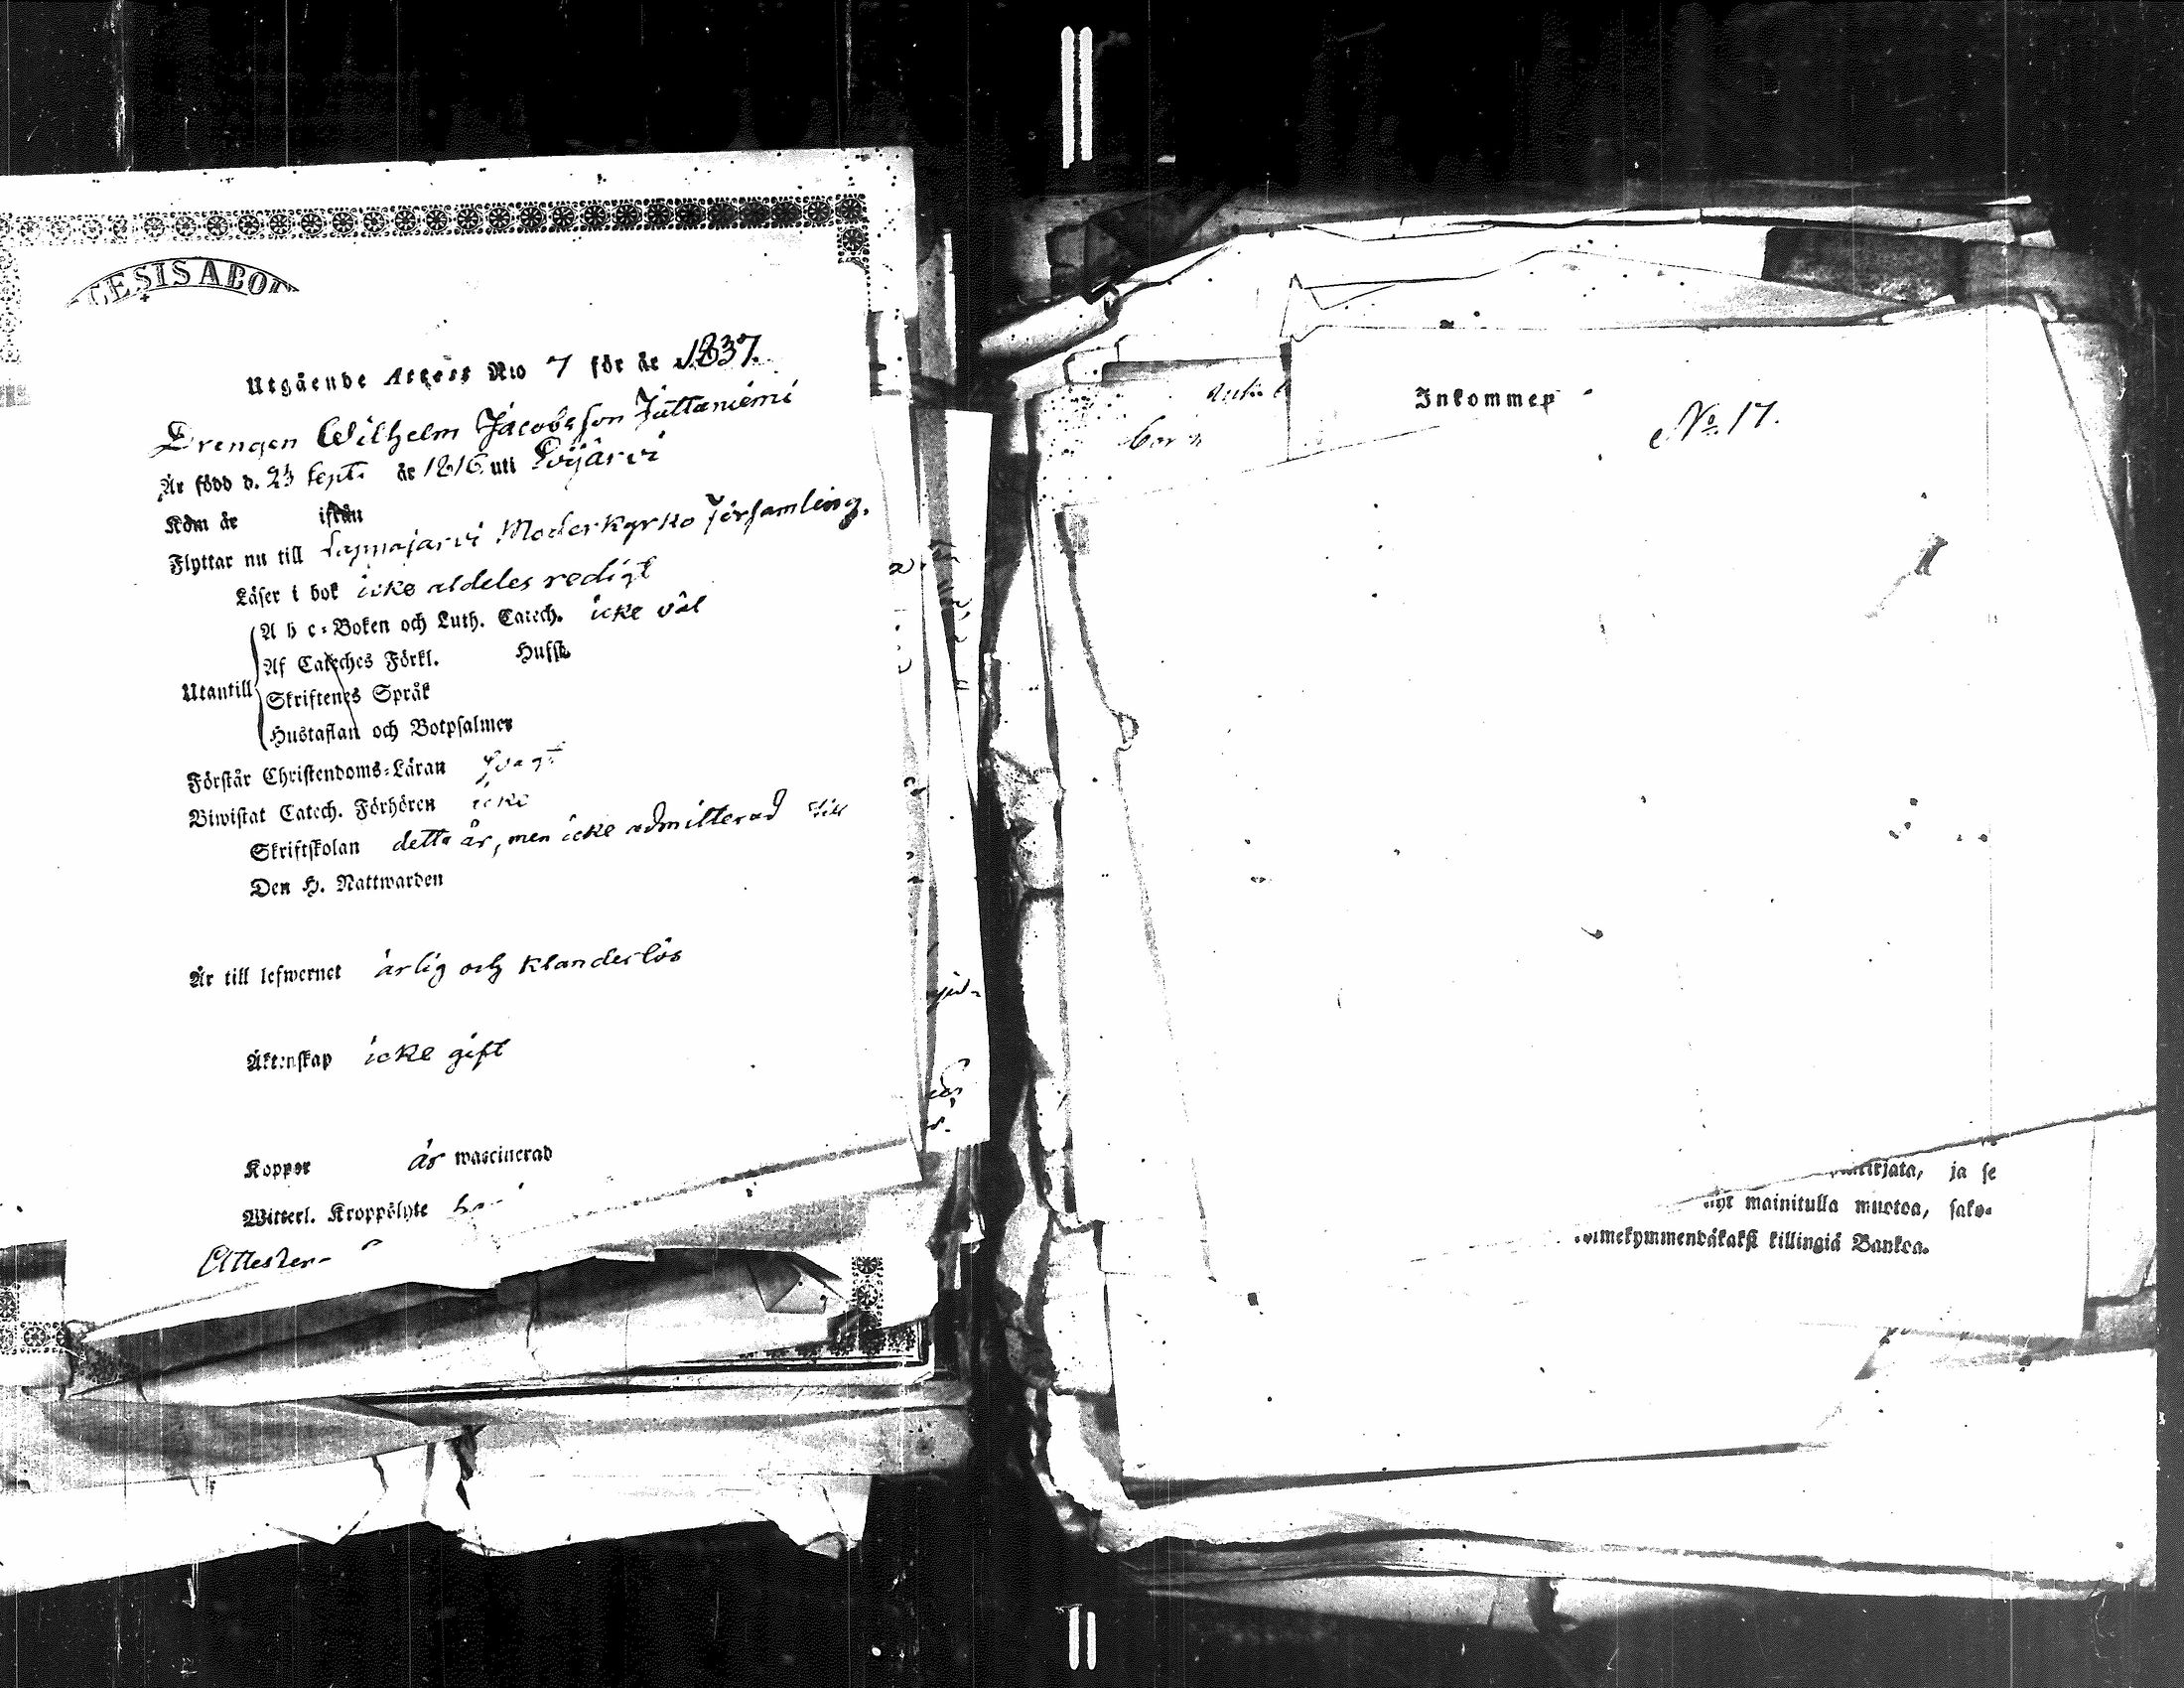 CESIS ABO
Utgående Attest N:o 7 för år 1837.
Drengen Wilhelm Jacobsson
Är född d. 23 Sept. år 1816 uti
Kom år ifrån
Flyttar nu till Lappajärvi Moderkyrko Församling.
Läser i bok icke aldeles redigt
A b c-Boken och Luth. Catech. icke väl
Af Cateches Förkl. Husſk
Utantill
Skriftenes Språk
Hustaflan och Botpsalmer
Förstår Christendoms-Läran svagt
Biwistat Catech. Förhören icke
Skriftskolan detta år, men icke admitterad till
Den H. Nattwarden
Är till lefwernet ärlig och klanderlös
Äktenskap icke gift
Koppor är waccinerad
Witterl. Kroppslyte har
Attester
Inkommen
No 17.
ja se
mainitulla muotoa, sako-
killingiä Bankoa.